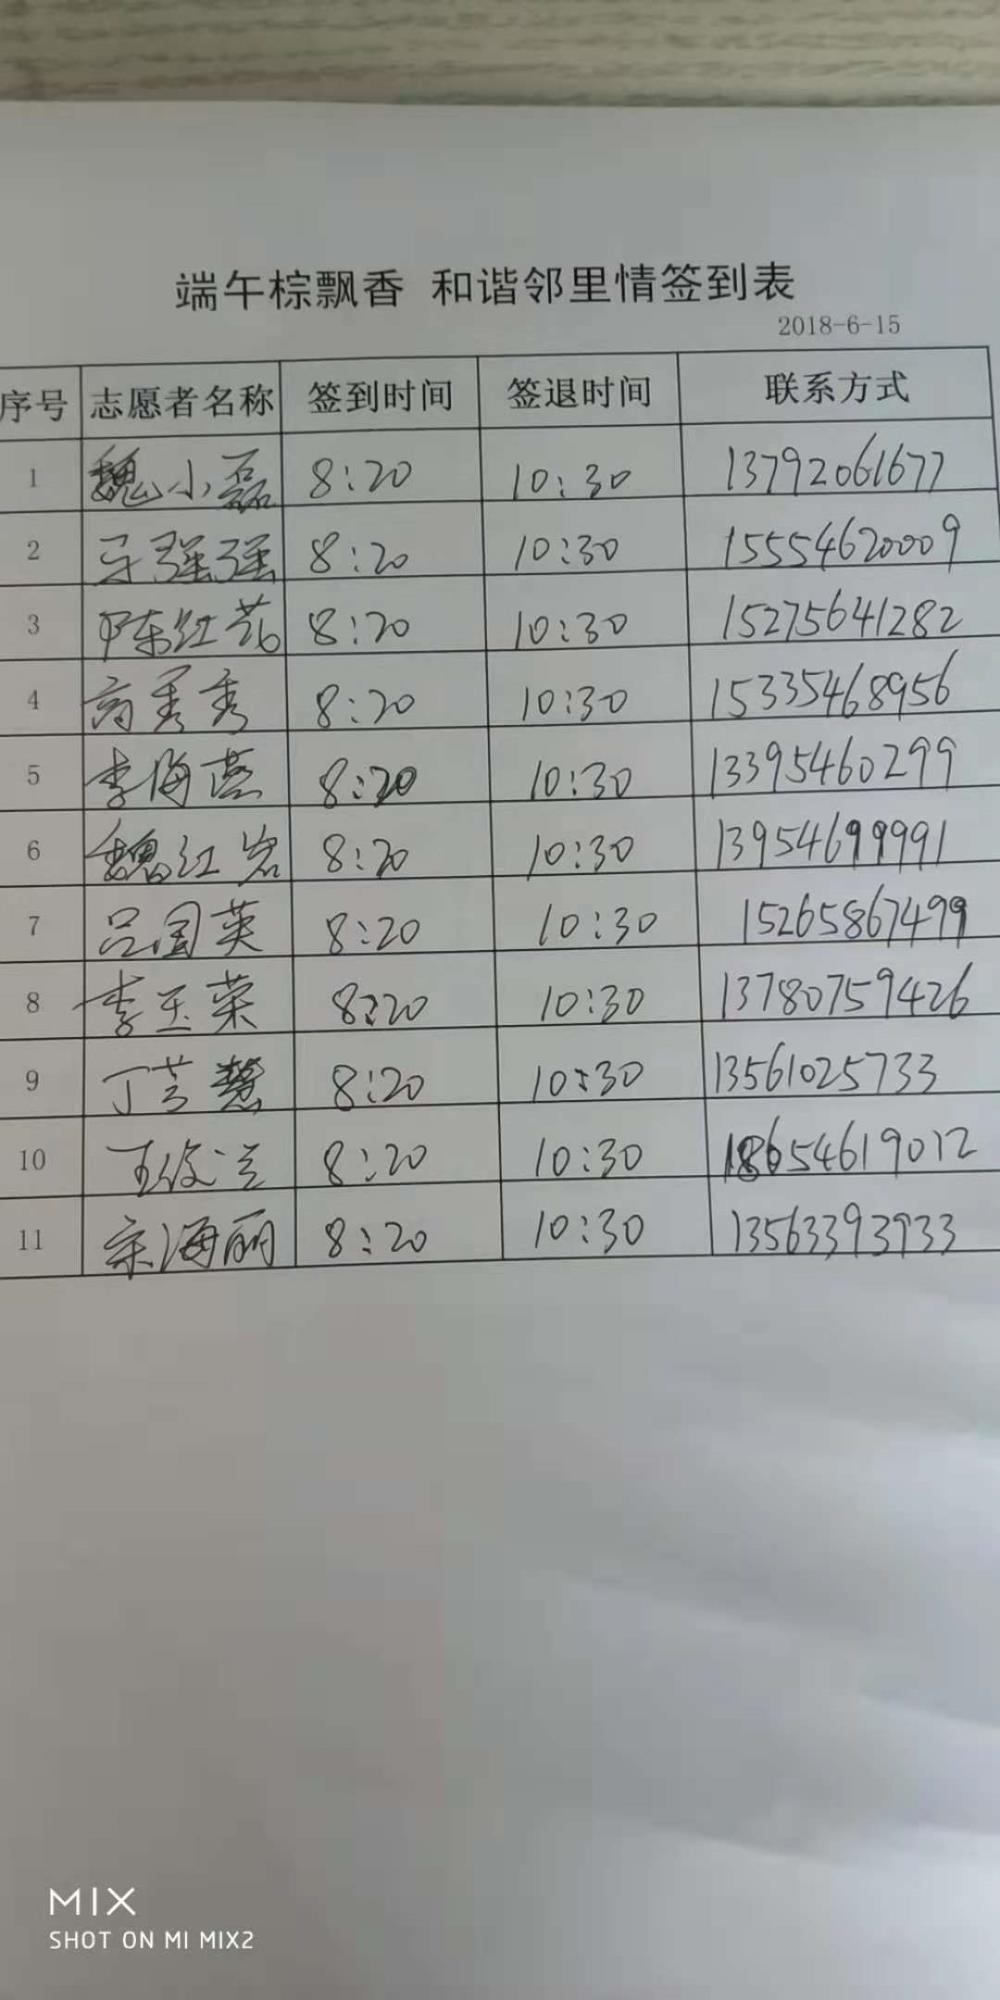 端午棕飘香 和谐邻里情签到表
2018-6-15
序号 志愿者名称 签到时间 签退时间 联系方式
1 魏小磊 8:20 10:30 13792061677
2 强强 8:20 10:30 15554620009
3 陈红花 8:20 10:30 15275641282
4 高秀秀 8:20 10:30 15335468956
5 李海燕 8:20 10:30 13395460299
6 魏红岩 8:20 10:30 13954699991
7 吕国英 8:20 10:30 15265867499
8 李玉荣 8:20 10:30 13780759426
9 丁芸慧 8:20 10:30 13561025733
10 王俊兰 8:20 10:30 18654619012
11 宋海丽 8:20 10:30 13563393933
MIX
SHOT ON MI MIX2